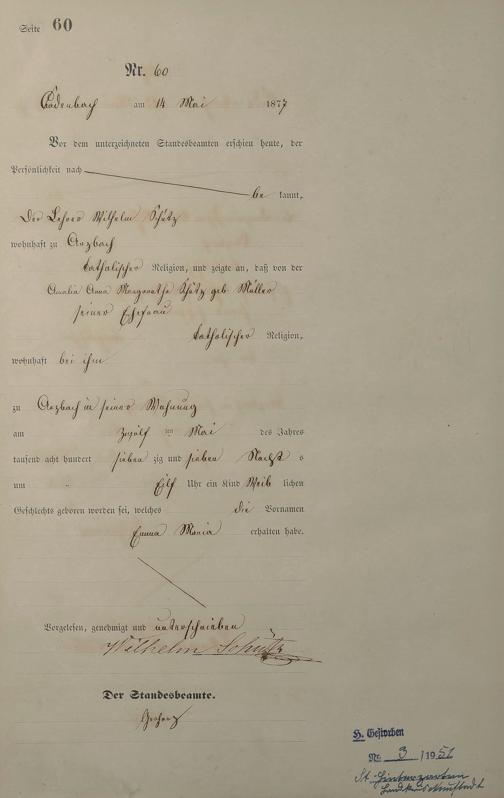 Seite 60
Nr. 60
Cadenbach am 14 Mai 1877
Vor dem unterzeichneten Standesbeamten erschien heute, der
Persönlichkeit nach
be kannt,
Der Lehrer Wilhelm Schütz
wohnhaft zu Arzbach
katholischer Religion, und zeigte an, daß von der
Amalia Anna Margaretha Schütz geb Müller
seiner Ehefrau
katholischer Religion,
wohnhaft bei ihm
zu Arzbach in seiner Wohnung
am zwölf ten Mai des Jahres
tausend acht hundert sieben zig und sieben Nacht s
um Eilf Uhr ein Kind Weib lichen
Geschlechts geboren worden sei, welches die Vornamen
Emma Maria erhalten habe.
Vorgelesen, genehmigt und unterschrieben
Wilhelm Schütz
Der Standesbeamte.
H. Gestorben
Nr. 3 /1951
St.